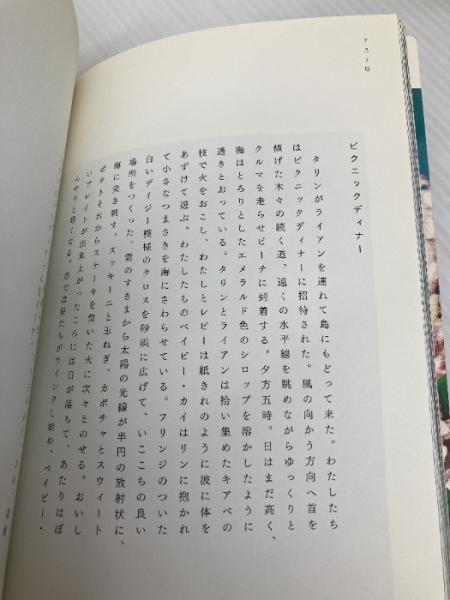 ピクニックディナー
タリンがライアンを連れて島にもどって来た。わたしたち
はピクニックディナーに招待された。風の向かう方向へ首を
傾げた木々の続く道、遠くの水平線を眺めながらゆっくりと
クルマを走らせビーチに到着する。夕方五時。日はまだ高く、
海はとろりとしたエメラルド色のシロップを溶かしたように
透きとおっている。タリンとライアンは拾い集めたキアベの
枝で火をおこし、わたしとレビーは紙きれのように波に体を
あずけて遊ぶ。わたしたちのベイビー・カイはリンに抱かれ
て小さなつまさきを海にさわらせている。フリンジのついた
白いデイジー模様のクロスを砂浜に広げて、いごこちの良い
場所をつくった。雲のすきまから太陽の光線が半円の放射状に、
海に突き刺す。ズッキーニと玉ねぎ、カボチャとスウィート
ポテトそれからステーキを焚いた火に次々とのせる。おいし
いプレイトが出来上がったころには日が落ちて、あたりはぼ
んやりと暗くなる。空では星たちがウインクし始め、ベイビー・